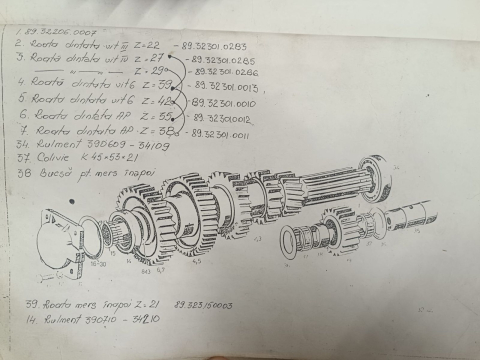 1. 89.32206.0007
2. Roata dintata vit III Z=22 - 89.32301.0283
3. Roată dintată vit IV Z=27 - 89.32301.0285
Z=29 - 89.32301.0286
4. Roată dintată vit 6 Z=39 - 89.32301.0013
5. Roata dintata vit 6 Z=42 - 89.32301.0010
6. Roata dintata AP Z=55 - 89.32301.0012
7. Roata dintata AP Z=38 - 89.32301.0011
34. Rulment 390609 - 34109
37. Colivie K 45×53×21
38 Bucsă pt. mers înapoi
39. Roata mers înapoi Z=21 89.323150003
14. Rulment 390710 - 34210